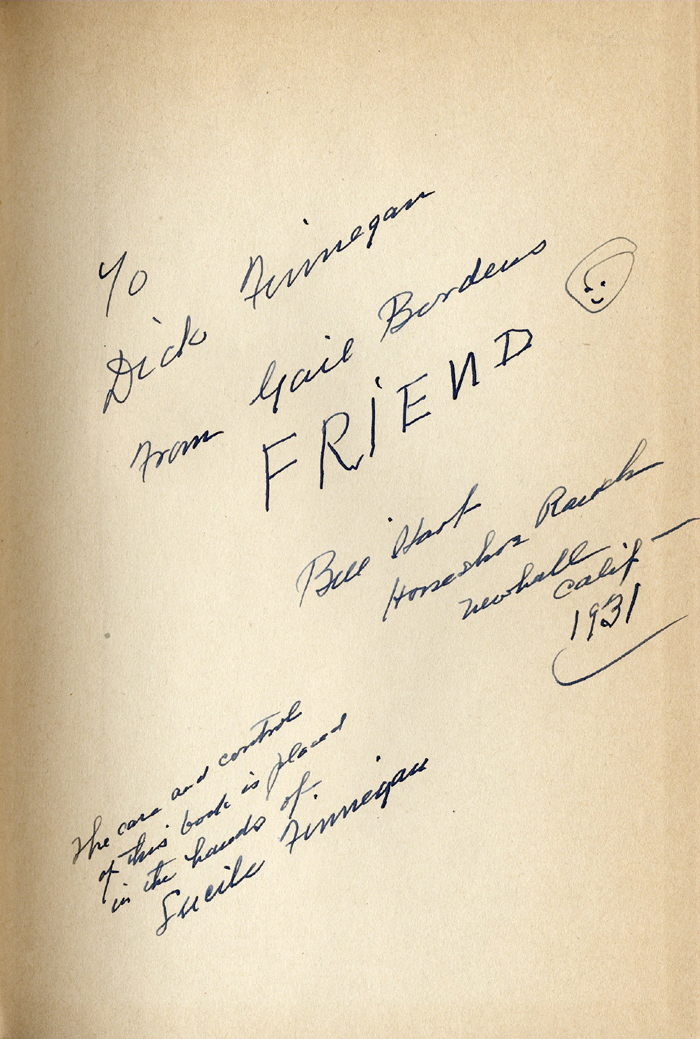 To
Dick Finnegan
from Gail Bordens
FRIEND
Bill Hart
Horseshoe Ranch
Newhall
Calif —
1931
The care and control
of this book is placed
in the hands of
Lucile Finnegan